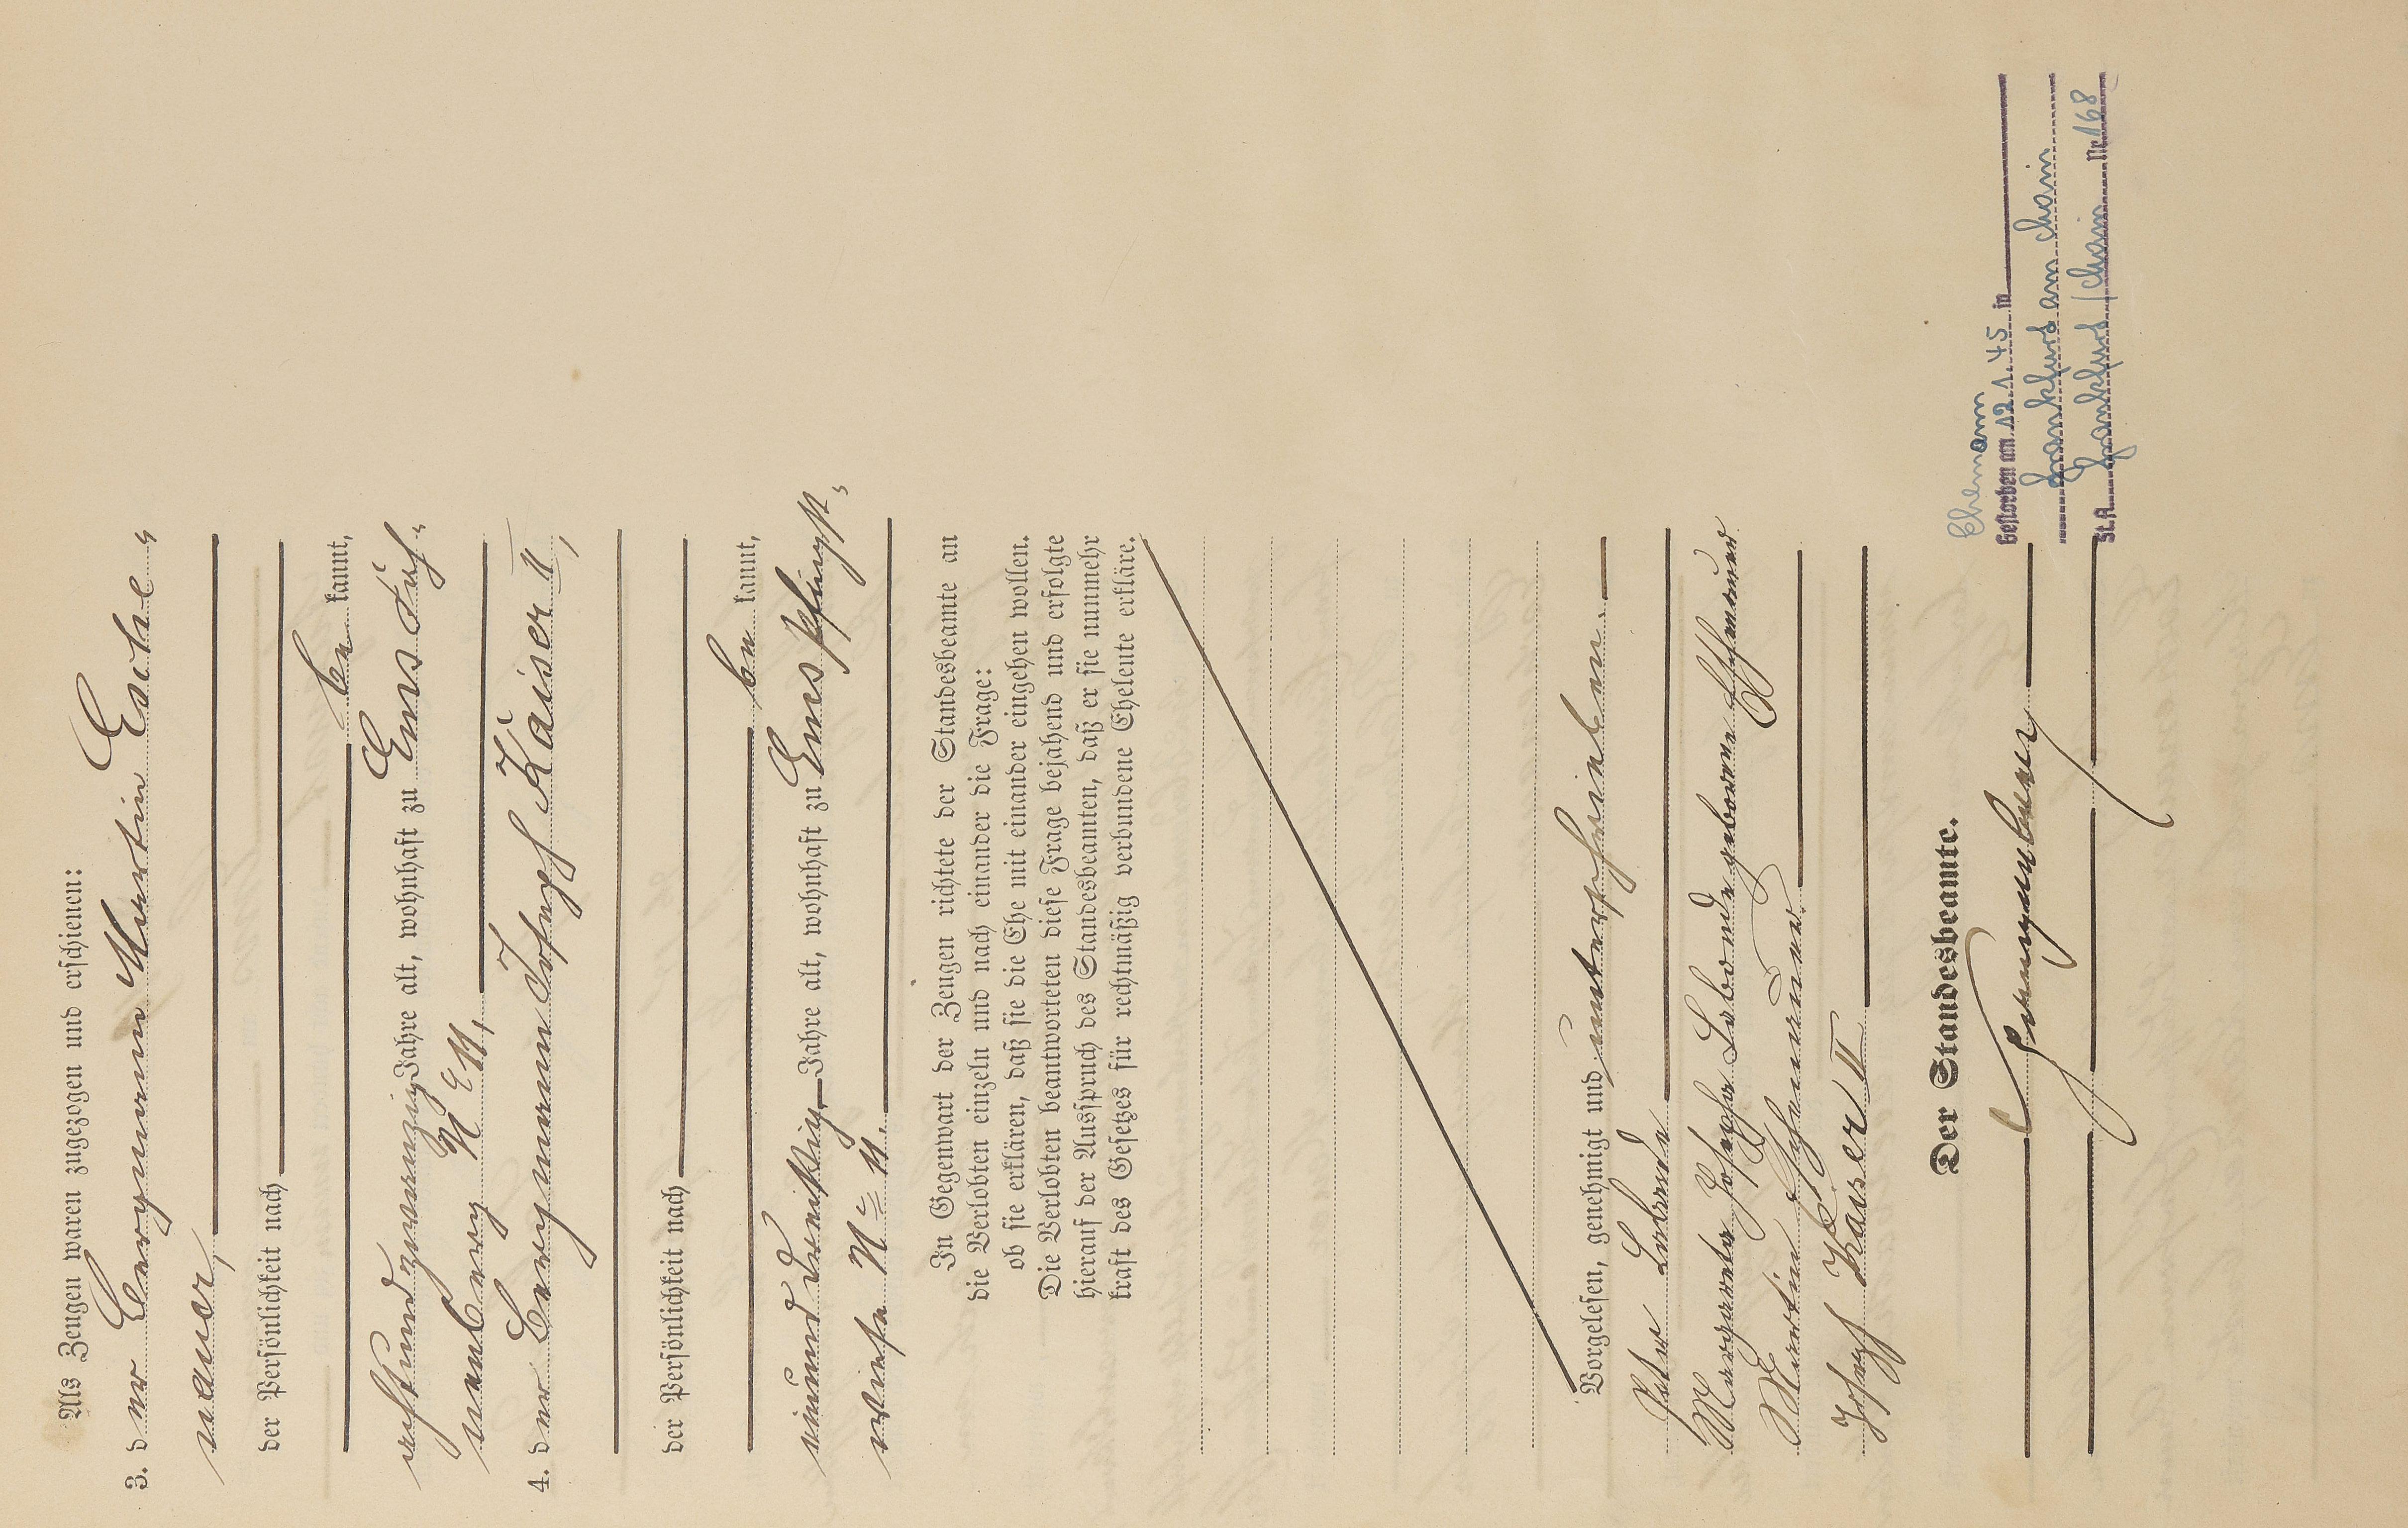 Als Zeugen waren zugezogen und erschienen:
3. der Bergmann Martin Eschen-
auer,
der Persönlichkeit nach
be kannt,
achtundzwanzig Jahre alt, wohnhaft zu Ems
4. der Bergmann Joseph Kaiser II,
der Persönlichkeit nach
be kannt,
einunddreißig Jahre alt, wohnhaft zu Ems Pfingst-
wiese No 11.
In Gegenwart der Zeugen richtete der Standesbeamte an
die Verlobten einzeln und nach einander die Frage:
ob sie erklären, daß sie die Ehe mit einander eingehen wollen.
Die Verlobten beantworteten diese Frage bejahend und erfolgte
hierauf der Ausspruch des Standesbeamten, daß er sie nunmehr
kraft des Gesetzes für rechtmäßig verbundene Eheleute erkläre.
Vorgelesen, genehmigt und unterschrieben.
Peter Labonde
Margareta Josepha Labonde geborene
Martin Eschenauer.
Joseph Kaiser II
Der Standesbeamte.
Ehemann
Gestorben am 12.1.45 in
Frankfurt am Main
St.A. Frankfurt / Main Nr. 168